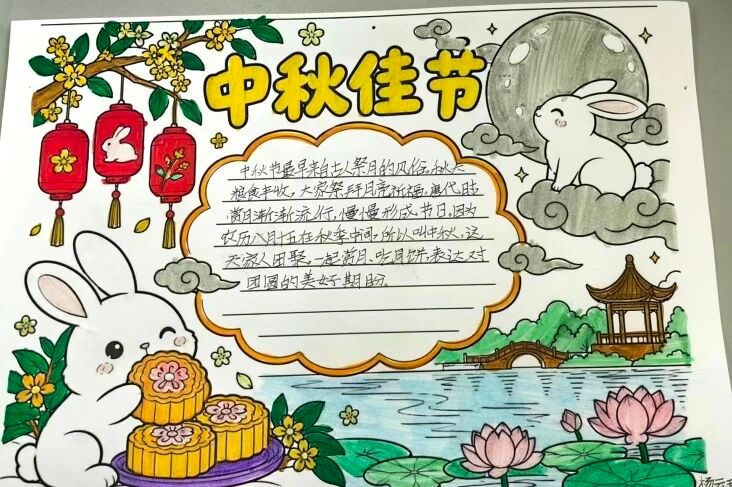 中秋佳节
中秋节最早来自古人祭月的风俗。秋天
粮食丰收，大家祭拜月亮祈福。唐代时
赏月渐渐流行，慢慢形成节日。因为
农历八月十五在秋季中间，所以叫中秋，这
天家人团聚，一起赏月、吃月饼，表达对
团圆的美好期盼。
杨云